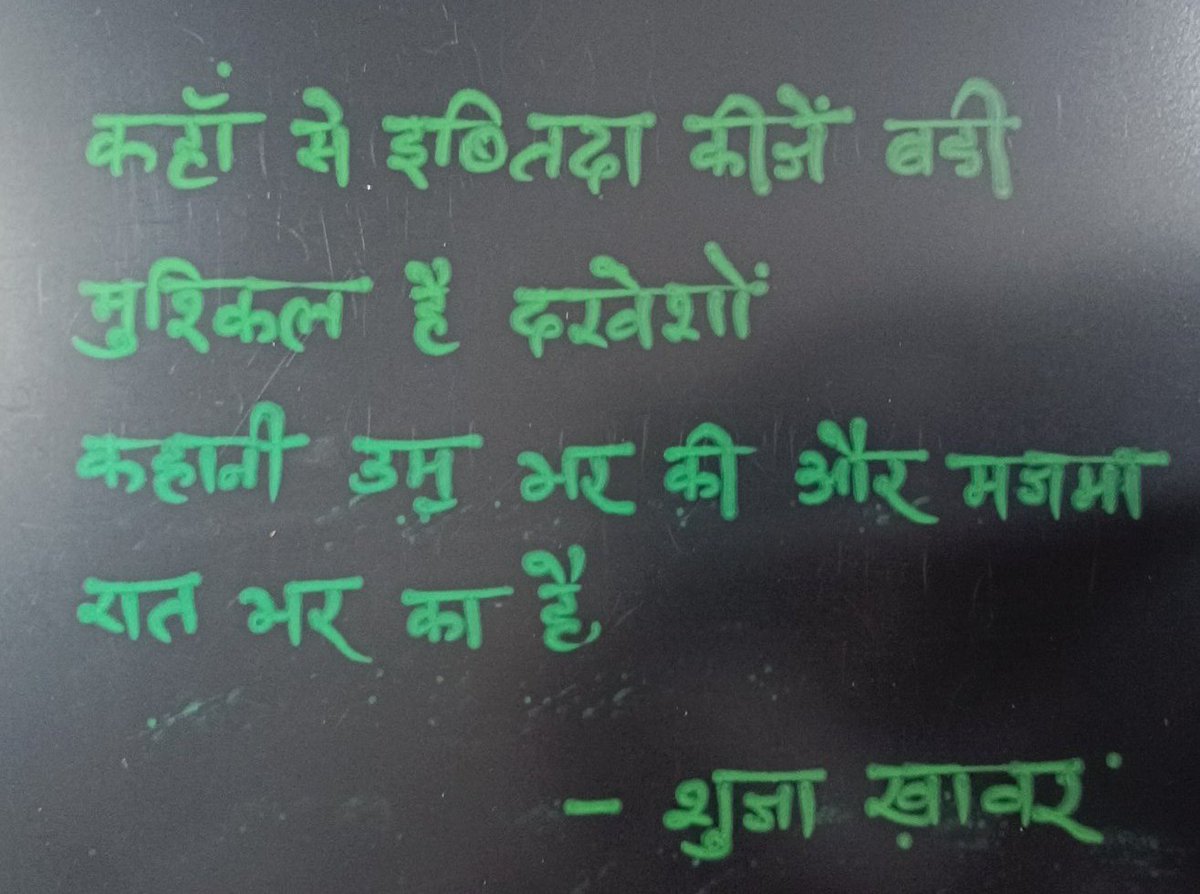 कहाँ से इब्तिदा कीजें बडी
मुश्किल है दरवेशों
कहानी उम्र भर की और मजमा
रात भर का है
- शुजा ख़ावर